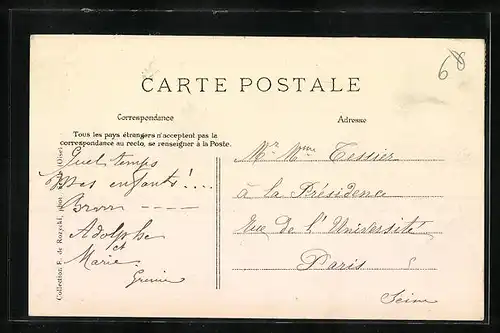 68
CARTE POSTALE
Correspondance
Adresse
Tous les pays étrangers n'acceptent pas la
correspondance au recto, se renseigner à la Poste.
Quel temps
Mes enfants!....
Brrrr ----
Adolphe
et
Marie
Mr Mme Tessier
à la Présidence
Rue de l'Université
Paris
Seine
Collection F. de Rozycki, (Oise)